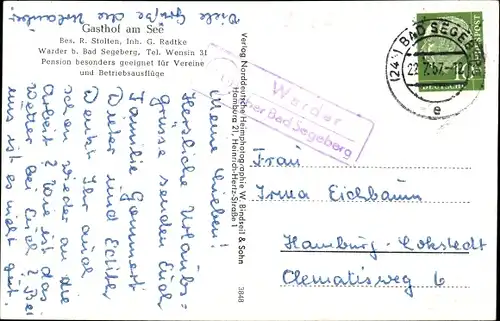 Viele Grüße die Urlauber
Gasthof am See
Bes. R. Stolten, Inh. G. Radtke
Warder b. Bad Segeberg, Tel. Wensin 31
Pension besonders geeignet für Vereine
und Betriebsausflüge
Meine Lieben!
Herzliche Urlaubs-
grüsse senden Euch
Familie Gommert
Dieter und
Denkt Ihr auch
schon wieder an die
Arbeit? Wie ist das
Wetter bei Euch? Bei
uns ist es nicht gut.
Verlag Norddeutsche Heimphotographie W. Bindseil & Sohn
Hamburg 21, Heinrich-Hertz-Straße 1
3848
Warder
über Bad Segeberg
(24b) BAD SEGEBERG
22.7.57
e
10
DEUTSCHE
POST
Frau
Irma Eichbaum
Hamburg-Lokstedt
Clematisweg 6